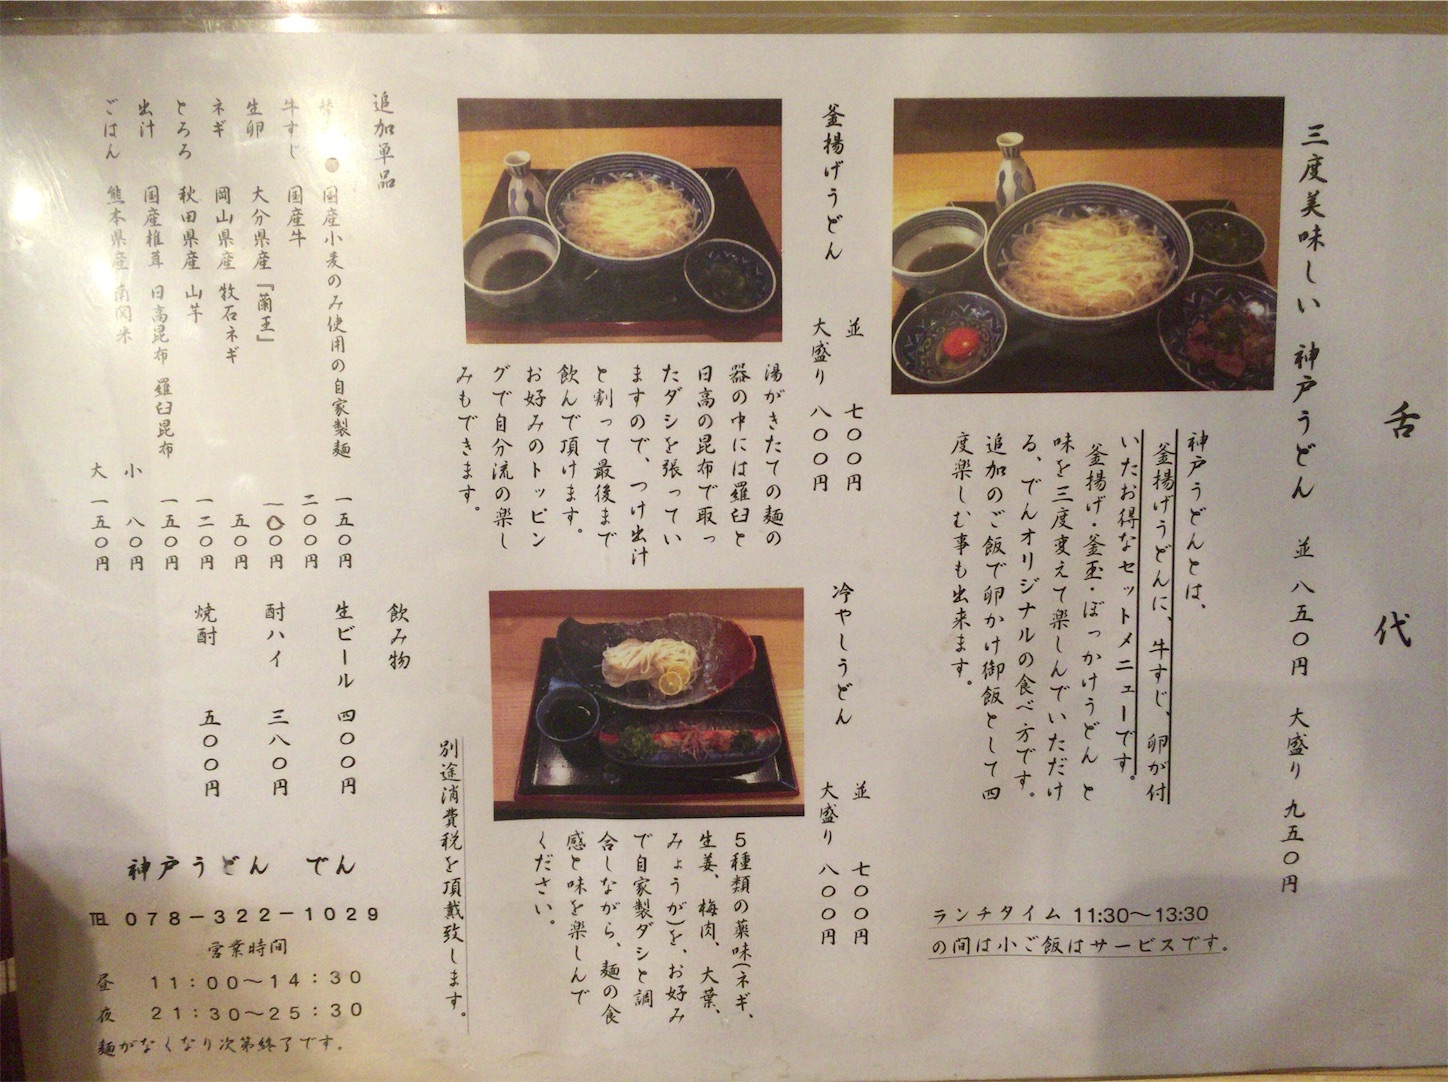 舌代
三度美味しい 神戸うどん 並 八五〇円 大盛り 九五〇円
神戸うどんとは、
釜揚げうどんに、牛すじ、卵が付
いたお得なセットメニューです。
釜揚げ・釜玉・ぼっかけうどん と
味を三度変えて楽しんでいただけ
る、でんオリジナルの食べ方です。
追加のご飯で卵かけ御飯として四
度楽しむ事も出来ます。
ランチタイム 11:30〜13:30
の間は小ご飯はサービスです。
釜揚げうどん
並 七〇〇円
大盛り 八〇〇円
湯がきたての麺の
器の中には羅臼と
日高の昆布で取っ
たダシを張ってい
ますので、つけ出汁
と割って最後まで
飲んで頂けます。
お好みのトッピン
グで自分流の楽し
みもできます。
冷やしうどん
並 七〇〇円
大盛り 八〇〇円
5種類の薬味(ネギ、
生姜、梅肉、大葉、
みょうが)を、お好み
で自家製ダシと調
合しながら、麺の食
感と味を楽しんで
ください。
別途消費税を頂戴致します。
追加単品
国産小麦のみ使用の自家製麺 一五〇円
牛すじ 国産牛 二〇〇円
生卵 大分県産「蘭王」 一〇〇円
ネギ 岡山県産 牧石ネギ 五〇円
とろろ 秋田県産 山芋 一二〇円
出汁 国産椎茸 日高昆布 羅臼昆布 一五〇円
ごはん 熊本県産 南関米 小 八〇円
大 一五〇円
飲み物
生ビール 四〇〇円
酎ハイ 三八〇円
焼酎 五〇〇円
神戸うどん でん
℡ 078−322−1029
営業時間
昼 11:00〜14:30
夜 21:30〜25:30
麺がなくなり次第終了です。